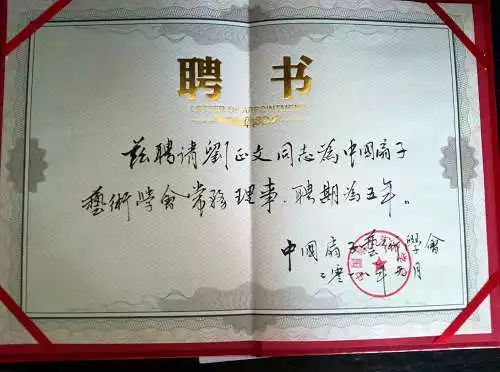 聘书
LETTER OF APPOINTMENT
兹聘请劉正文同志為中國扇子
藝術學會常務理事、聘期為五年。
中國扇子藝術學會
二零一八年 月